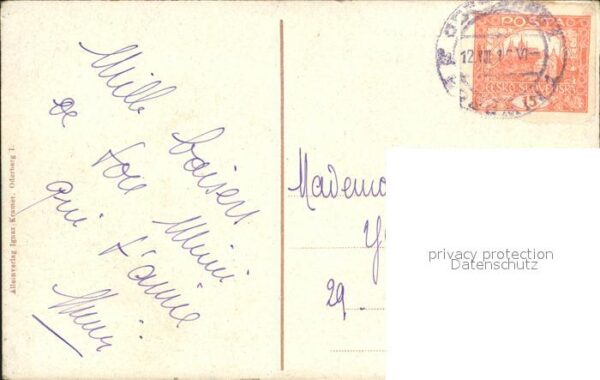 Mille baisers
de ton Mimi
qui t'aime
Mimi
Alleinverlag Ignaz Kramer, Oderberg I.
POSTA
ČESKO-SLOVENSKÁ
12.III.1
VI
Mademo
29
privacy protection
Datenschutz